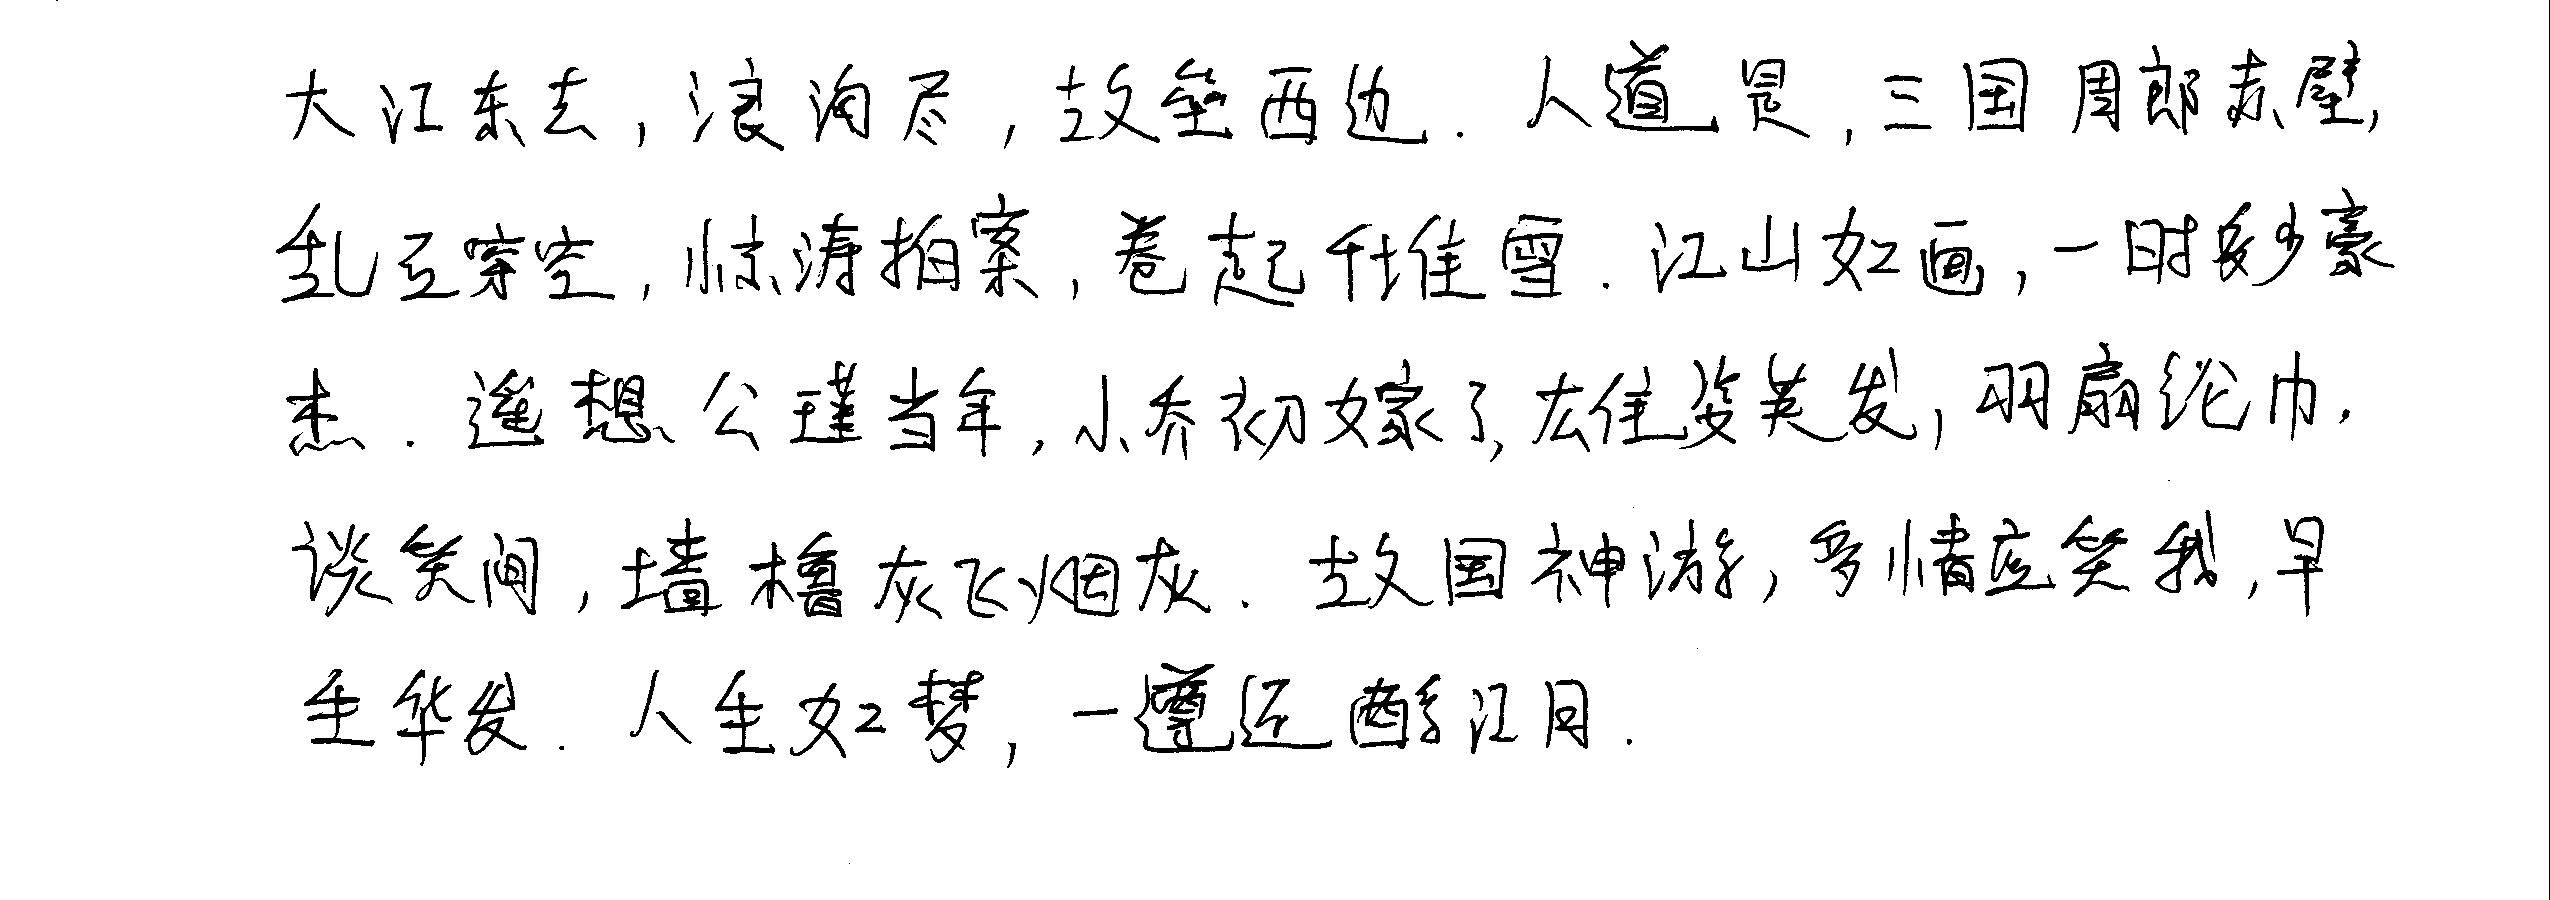 大江东去，浪淘尽，故垒西边．人道是，三国周郎赤壁，
乱石穿空，惊涛拍案，卷起千堆雪．江山如画，一时多少豪
杰．遥想公瑾当年，小乔初嫁了，雄姿英发，羽扇纶巾．
谈笑间，墙橹灰飞烟灰．故国神游，多情应笑我，早
生华发．人生如梦，一遵还酹江月．